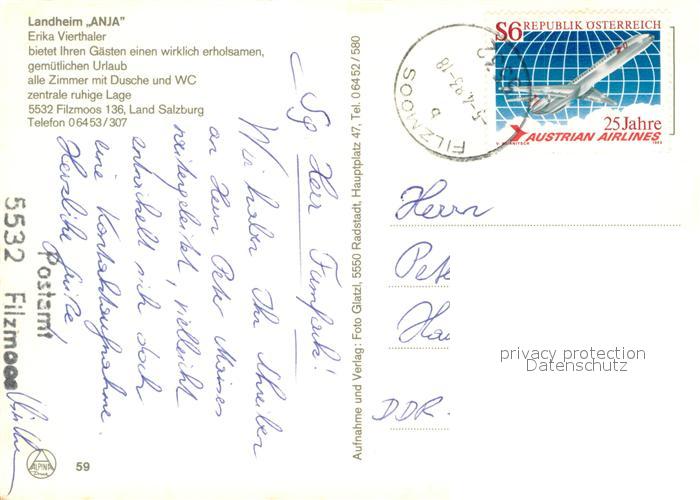 Landheim „ANJA”
Erika Vierthaler
bietet Ihren Gästen einen wirklich erholsamen,
gemütlichen Urlaub
alle Zimmer mit Dusche und WC
zentrale ruhige Lage
5532 Filzmoos 136, Land Salzburg
Telefon 06453/307
Sg Herr
Wir haben Ihr Schreiben
an Herrn Peter
weitergeleitet, vielleicht
entwickelt sich doch
eine Kontaktaufnahme.
Herzliche Grüße!
Postamt
5532 Filzmoos
ALPINA
59
Aufnahme und Verlag: Foto Glatzl, 5550 Radstadt, Hauptplatz 47, Tel. 06452/580
S6 REPUBLIK ÖSTERREICH
25 Jahre
AUSTRIAN AIRLINES
1983
FILZMOOS
b
Herrn
Pete
Ha
DDR
privacy protection
Datenschutz